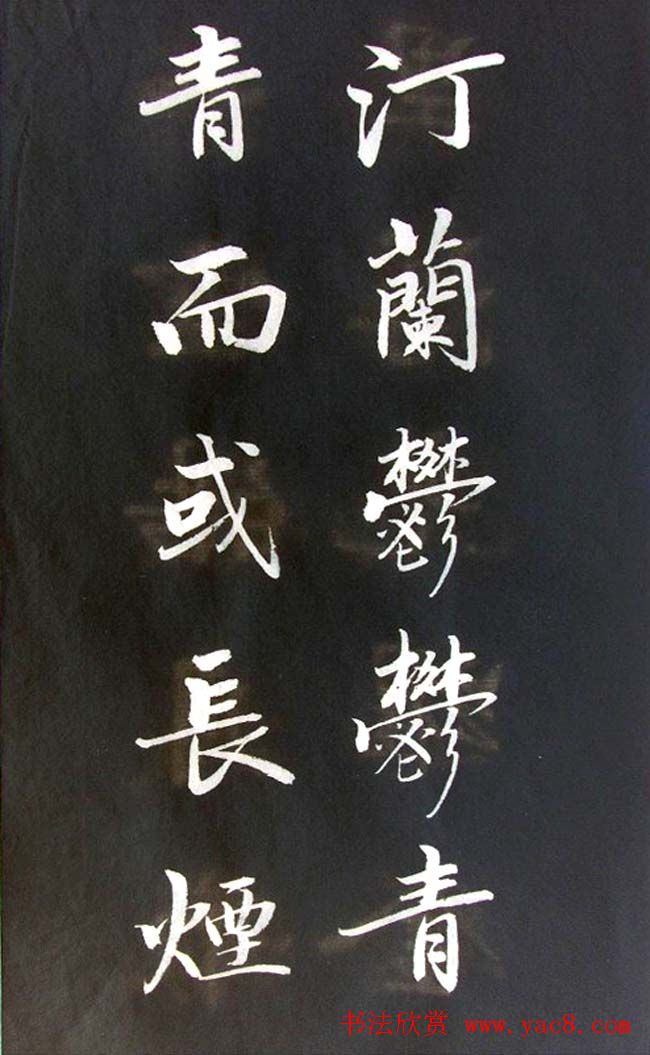 汀蘭鬱鬱青
青而或長煙
书法欣赏 www.yac8.com